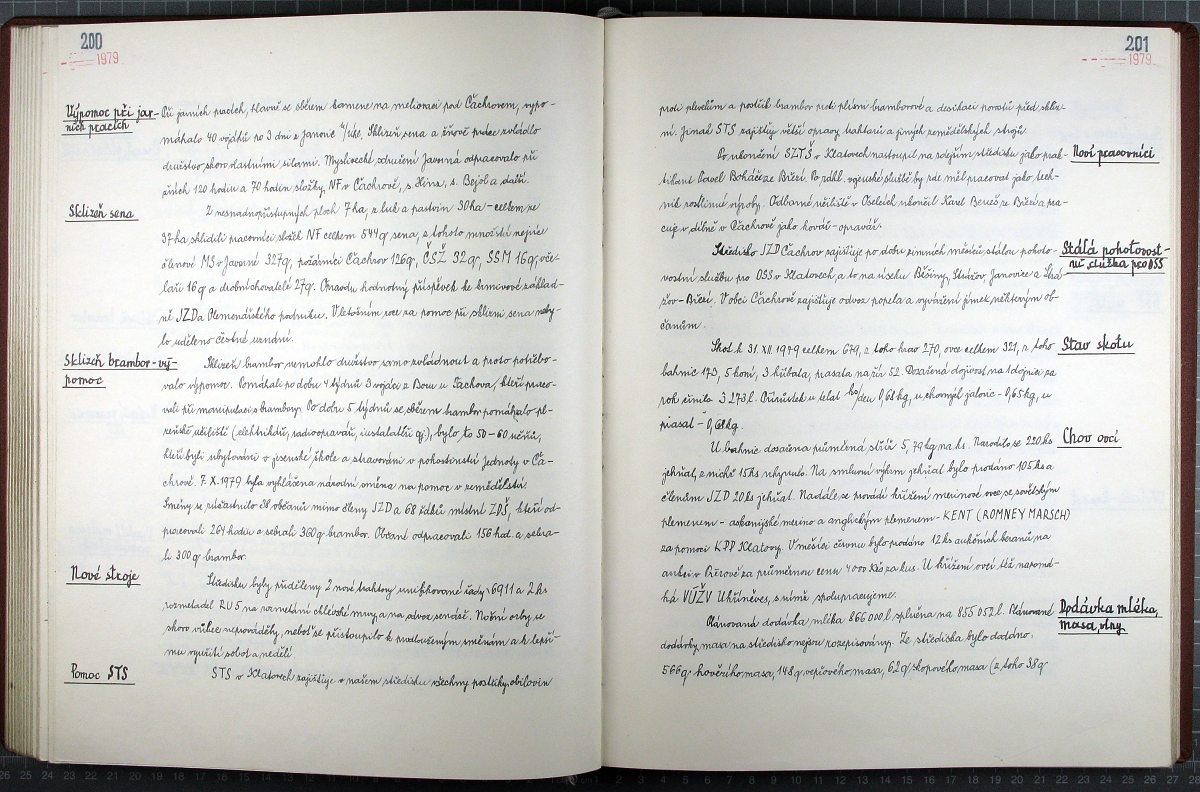 200
1979
Výpomoc při jar-
ních pracích
Při jarních pracích, hlavně se sběrem kamene na melioraci pod Čachrovem, vypo-
máhalo 40 vojáků po 3 dni z Janovic n/Úhl. Sklizeň sena a žňové práce zvládlo
družstvo skoro vlastními silami. Myslivecké sdružení Javorná odpracovalo při
žních 120 hodin a 70 hodin složky NF v Čachrově, s. Hina, s. Bejol a další.
Sklizeň sena
Z nesnadnopřístupných ploch 7 ha, z luk a pastvin 30 ha - celkem ze
37 ha sklidili pracovníci složek NF celkem 544 q sena, z tohoto množství nejvíce
členové MS v Javorné 327 q, požárníci Čachrov 126 q, ČSŽ 32 q, SSM 16 q, vče-
laři 16 q a drobní chovatelé 27 q. Opravdu hodnotný příspěvek ke krmivové základ-
ně JZD a Plemenářského podniku. V letošním roce za pomoc při sklizni sena neby-
lo uděleno čestné uznání.
Sklizeň brambor - vý-
pomoc
Sklizeň brambor nemohlo družstvo samo zvládnout a proto potřebo-
valo výpomoc. Pomáhali po dobu 4 týdnů 3 vojáci z Boru u Tachova, kteří praco-
vali při manipulaci s brambory. Po dobu 5 týdnů se sběrem brambor pomáhalo pl-
zeňské učiliště (elektrikářů, radioopravářů, instalatérů aj.), bylo to 50-60 učňů,
kteří byli ubytováni v jesenské škole a stravováni v pohostinství Jednoty v Ča-
chrově. 7. X. 1979 byla vyhlášena národní směna na pomoc v zemědělství.
Směny se zúčastnilo 28 občanů mimo členy JZD a 68 žáků místní ZDŠ, kteří od-
pracovali 264 hodin a sebrali 360 q brambor. Občané odpracovali 156 hod. a sebra-
li 300 q brambor.
Nové stroje
Středisku byly přiděleny 2 nové traktory unifikované řady 6911 a 2 ks
rozmetadel RU 5 na rozmetání chlévské mrvy a na odvoz senáže. Noční orby se
skoro vůbec neprováděly, neboť se přistoupilo k prodlouženým směnám a k lepší-
mu využití sobot a nedělí.
Pomoc STS
STS v Klatovech zajišťuje v našem středisku všechny postřiky obilovin
201
1979
proti plevelům a postřik brambor proti plísni bramborové a desikaci porostů před skliz-
ní. Jinak STS zajišťuje větší opravy traktorů a jiných zemědělských strojů.
Noví pracovníci
Po ukončení SZTŠ v Klatovech nastoupil na zdejším středisku jako prak-
tikant Pavel Boháč ze Březí. Po zákl. vojenské službě by zde měl pracovat jako tech-
nik rostlinné výroby. Odborné učiliště v Oselcích ukončil Karel Beneš ze Březí a pra-
cuje v dílně v Čachrově jako kovář-opravář.
Stálá pohotovost-
ní služba pro OSS
Středisko JZD Čachrov zajišťuje po dobu zimních měsíců stálou pohoto-
vostní službu pro OSS v Klatovech, a to na úseku Běšiny, Strážov, Janovice a Strá-
žov - Březí. V obci Čachrově zajišťuje odvoz popela a vyvážení jímek některým ob-
čanům.
Stav skotu
Skot k 31. XII. 1979 celkem 679, z toho krav 270, ovce celkem 321, z toho
bahnic 173, 5 koní, 3 hříbata, prasata na žír 52. Dosažená dojivost na 1 dojnici za
rok činila 3 273 l. Přírůstek u telat ks/den 0,68 kg, u chovných jalovic - 0,65 kg, u
prasat - 0,68 kg.
Chov ovcí
U bahnic dosažena průměrná stříž 5,79 kg na ks. Narodilo se 220 ks
jehňat, z nichž 15 ks uhynulo. Na smluvní výkrm jehňat bylo prodáno 105 ks a
členům JZD 20 ks jehňat. Nadále se provádí křížení merinové ovce se sovětským
plemenem - askanijské merino a anglickým plemenem - KENT (ROMNEY MARSCH)
za pomoci KPP Klatovy. V měsíci červnu bylo prodáno 12 ks aukčních beranů na
aukci v Přerově za průměrnou cenu 4 000 Kčs za kus. U křížení ovcí též napomá-
há VÚŽV Uhříněves, s nímž spolupracujeme.
Dodávka mléka,
masa, vlny
Plánovaná dodávka mléka 866 000 l, splněna na 855 052 l. Plánované
dodávky masa na středisko nejsou rozepisovány. Ze střediska bylo dodáno:
566 q hovězího masa, 148 q vepřového masa, 62 q skopového masa (z toho 38 q